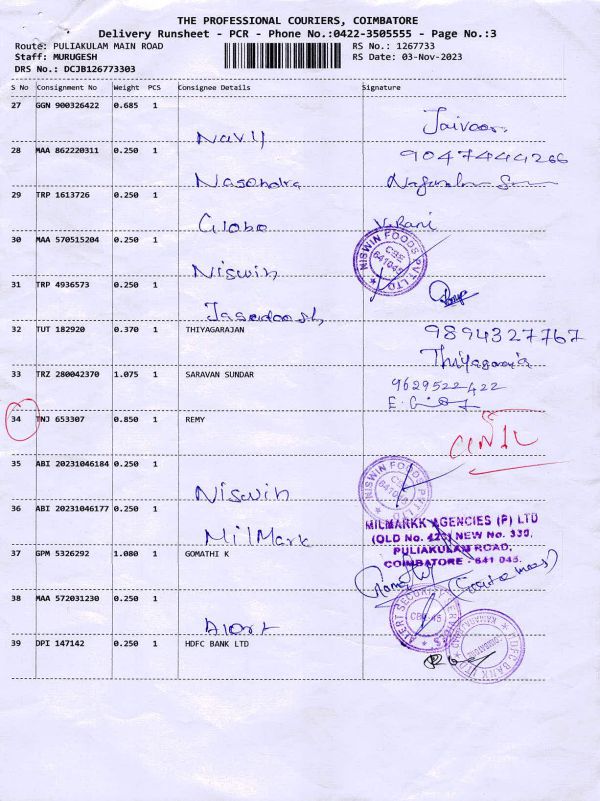 THE PROFESSIONAL COURIERS, COIMBATORE
Delivery Runsheet - PCR - Phone No.:0422-3505555 - Page No.:3
Route: PULIAKULAM MAIN ROAD RS No.: 1267733
Staff: MURUGESH RS Date: 03-Nov-2023
DRS No.: DCJB126773303
S No Consignment No Weight PCS Consignee Details Signature
27 GGN 900326422 0.685 1
9047444266
28 MAA 862220311 0.250 1
Nagendra
29 TRP 1613726 0.250 1
Globe V.Rani
30 MAA 570515204 0.250 1
NISWIN FOODS PVT LTD
CBE
641045
Niswin
31 TRP 4936573 0.250 1
32 TUT 182920 0.370 1 THIYAGARAJAN
9894327767
33 TRZ 280042370 1.075 1 SARAVAN SUNDAR
9629522422
34 TNJ 653307 0.850 1 REMY
35 ABI 20231046184 0.250 1
NISWIN FOODS PVT LTD
CBE
641045
Niswin
36 ABI 20231046177 0.250 1
MilMark
MILMARKK AGENCIES (P) LTD
(OLD No. 423) NEW No. 330,
PULIAKULAM ROAD,
COIMBATORE - 641 045.
37 GPM 5326292 1.080 1 GOMATHI K
38 MAA 572031230 0.250 1
Alert
ALERT SECURITY SERVICES
CBE-45
39 DPI 147142 0.250 1 HDFC BANK LTD
HDFC BANK LTD